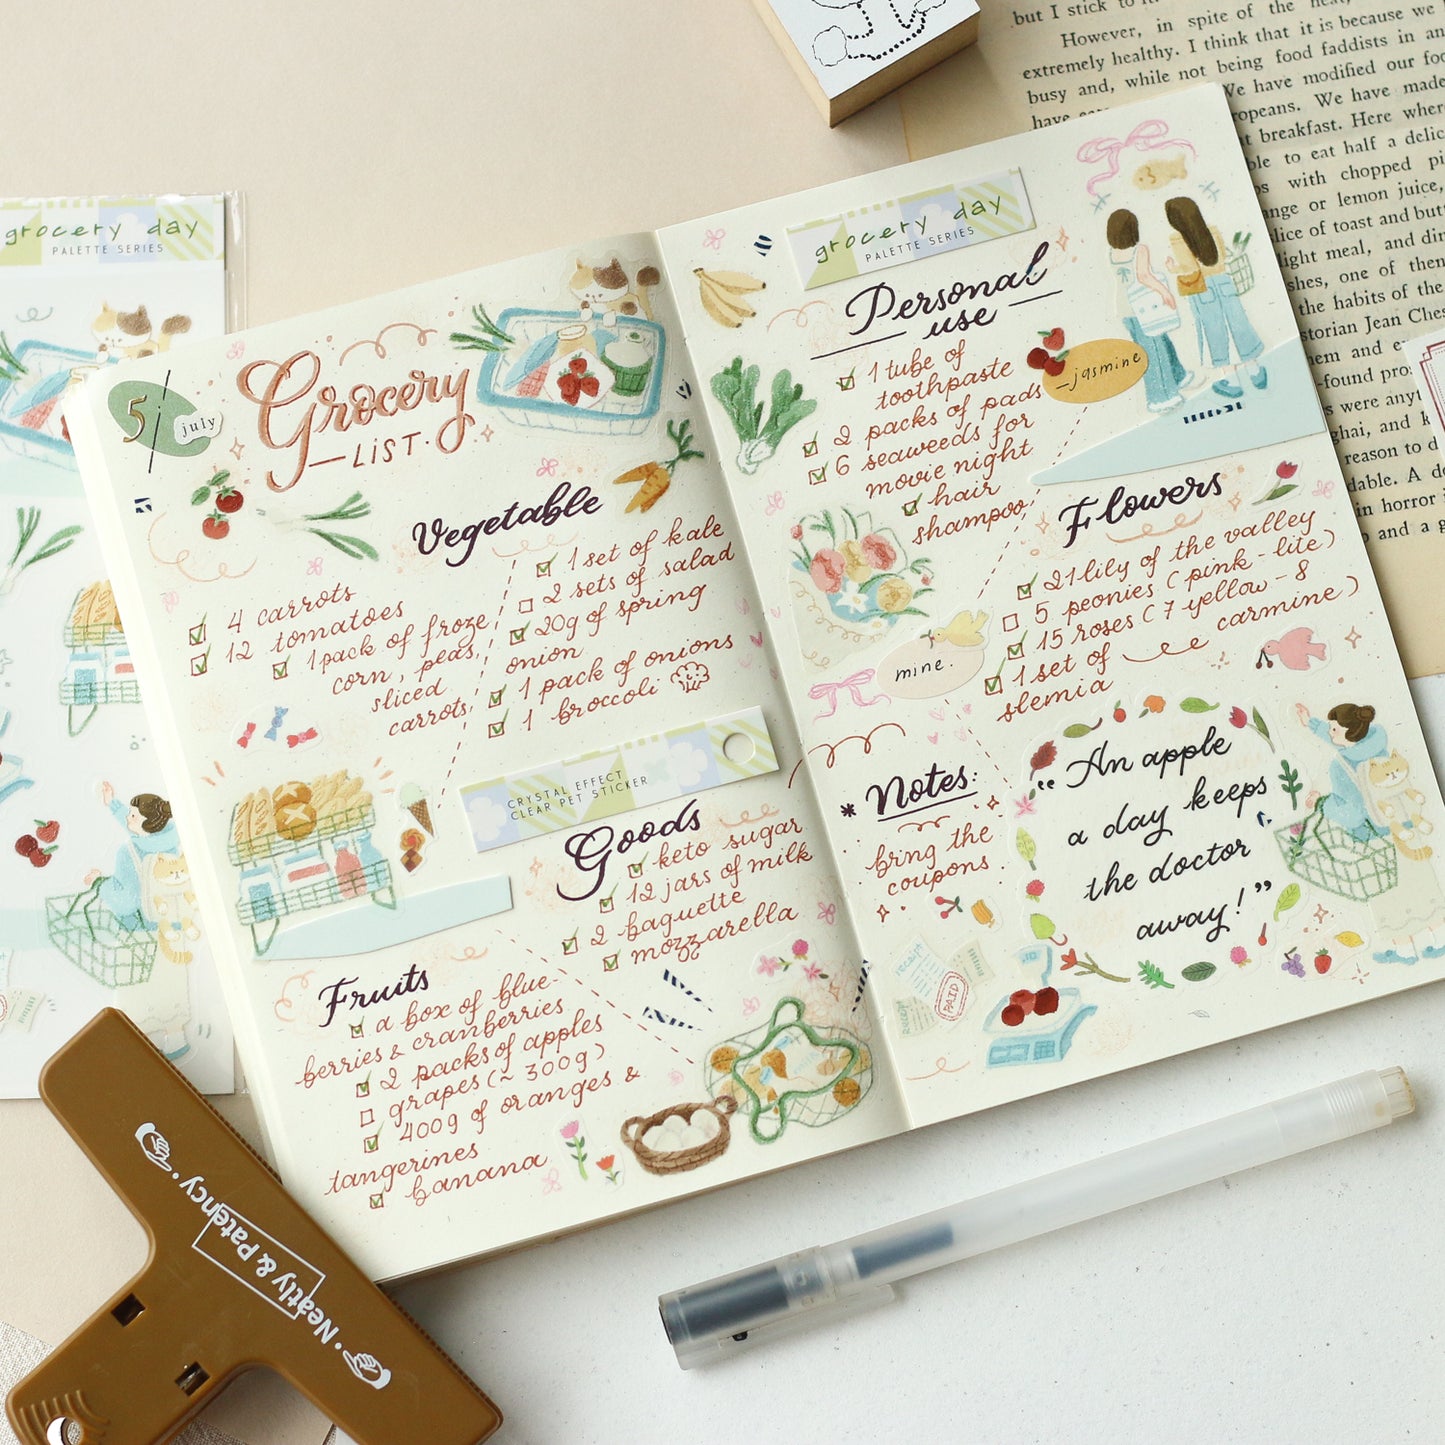 grocery day
PALETTE SERIES
5
july
Grocery
LIST.
Vegetable
4 carrots
12 tomatoes
1 pack of froze
corn, peas,
sliced
carrots
1 set of kale
2 sets of salad
20g of spring
onion
1 pack of onions
1 broccoli
CRYSTAL EFFECT
CLEAR PET STICKER
Goods
keto sugar
12 jars of milk
2 baguette
mozzarella
Fruits
a box of blue-
berries & cranberries
2 packs of apples
grapes (~ 300g)
400g of oranges &
tangerines
banana
grocery day
PALETTE SERIES
Personal
use
1 tube of
toothpaste
2 packs of pads
6 seaweeds for
movie night
hair
shampoo
jasmine
Flowers
21 lily of the valley
5 peonies (pink-lite)
15 roses (7 yellow-8
carmine)
1 set of
slemia
mine.
* Notes:
bring the
coupons
"An apple
a day keeps
the doctor
away!"
receipt
PAID
Receipt
Neatly & Patency
but I stick to
However, in spite of the heat,
extremely healthy. I think that it is because we
busy and, while not being food faddists in an
We have modified our foo
have
opeans. We have made
breakfast. Here wher
to eat half a delic
with chopped pi
or lemon juice,
lice of toast and butt
light meal, and din
shes, one of them
the habits of the
storian Jean Ches
-found pro
were anyt
ghai, and k
reason to d
dable. A de
in horror
and a g